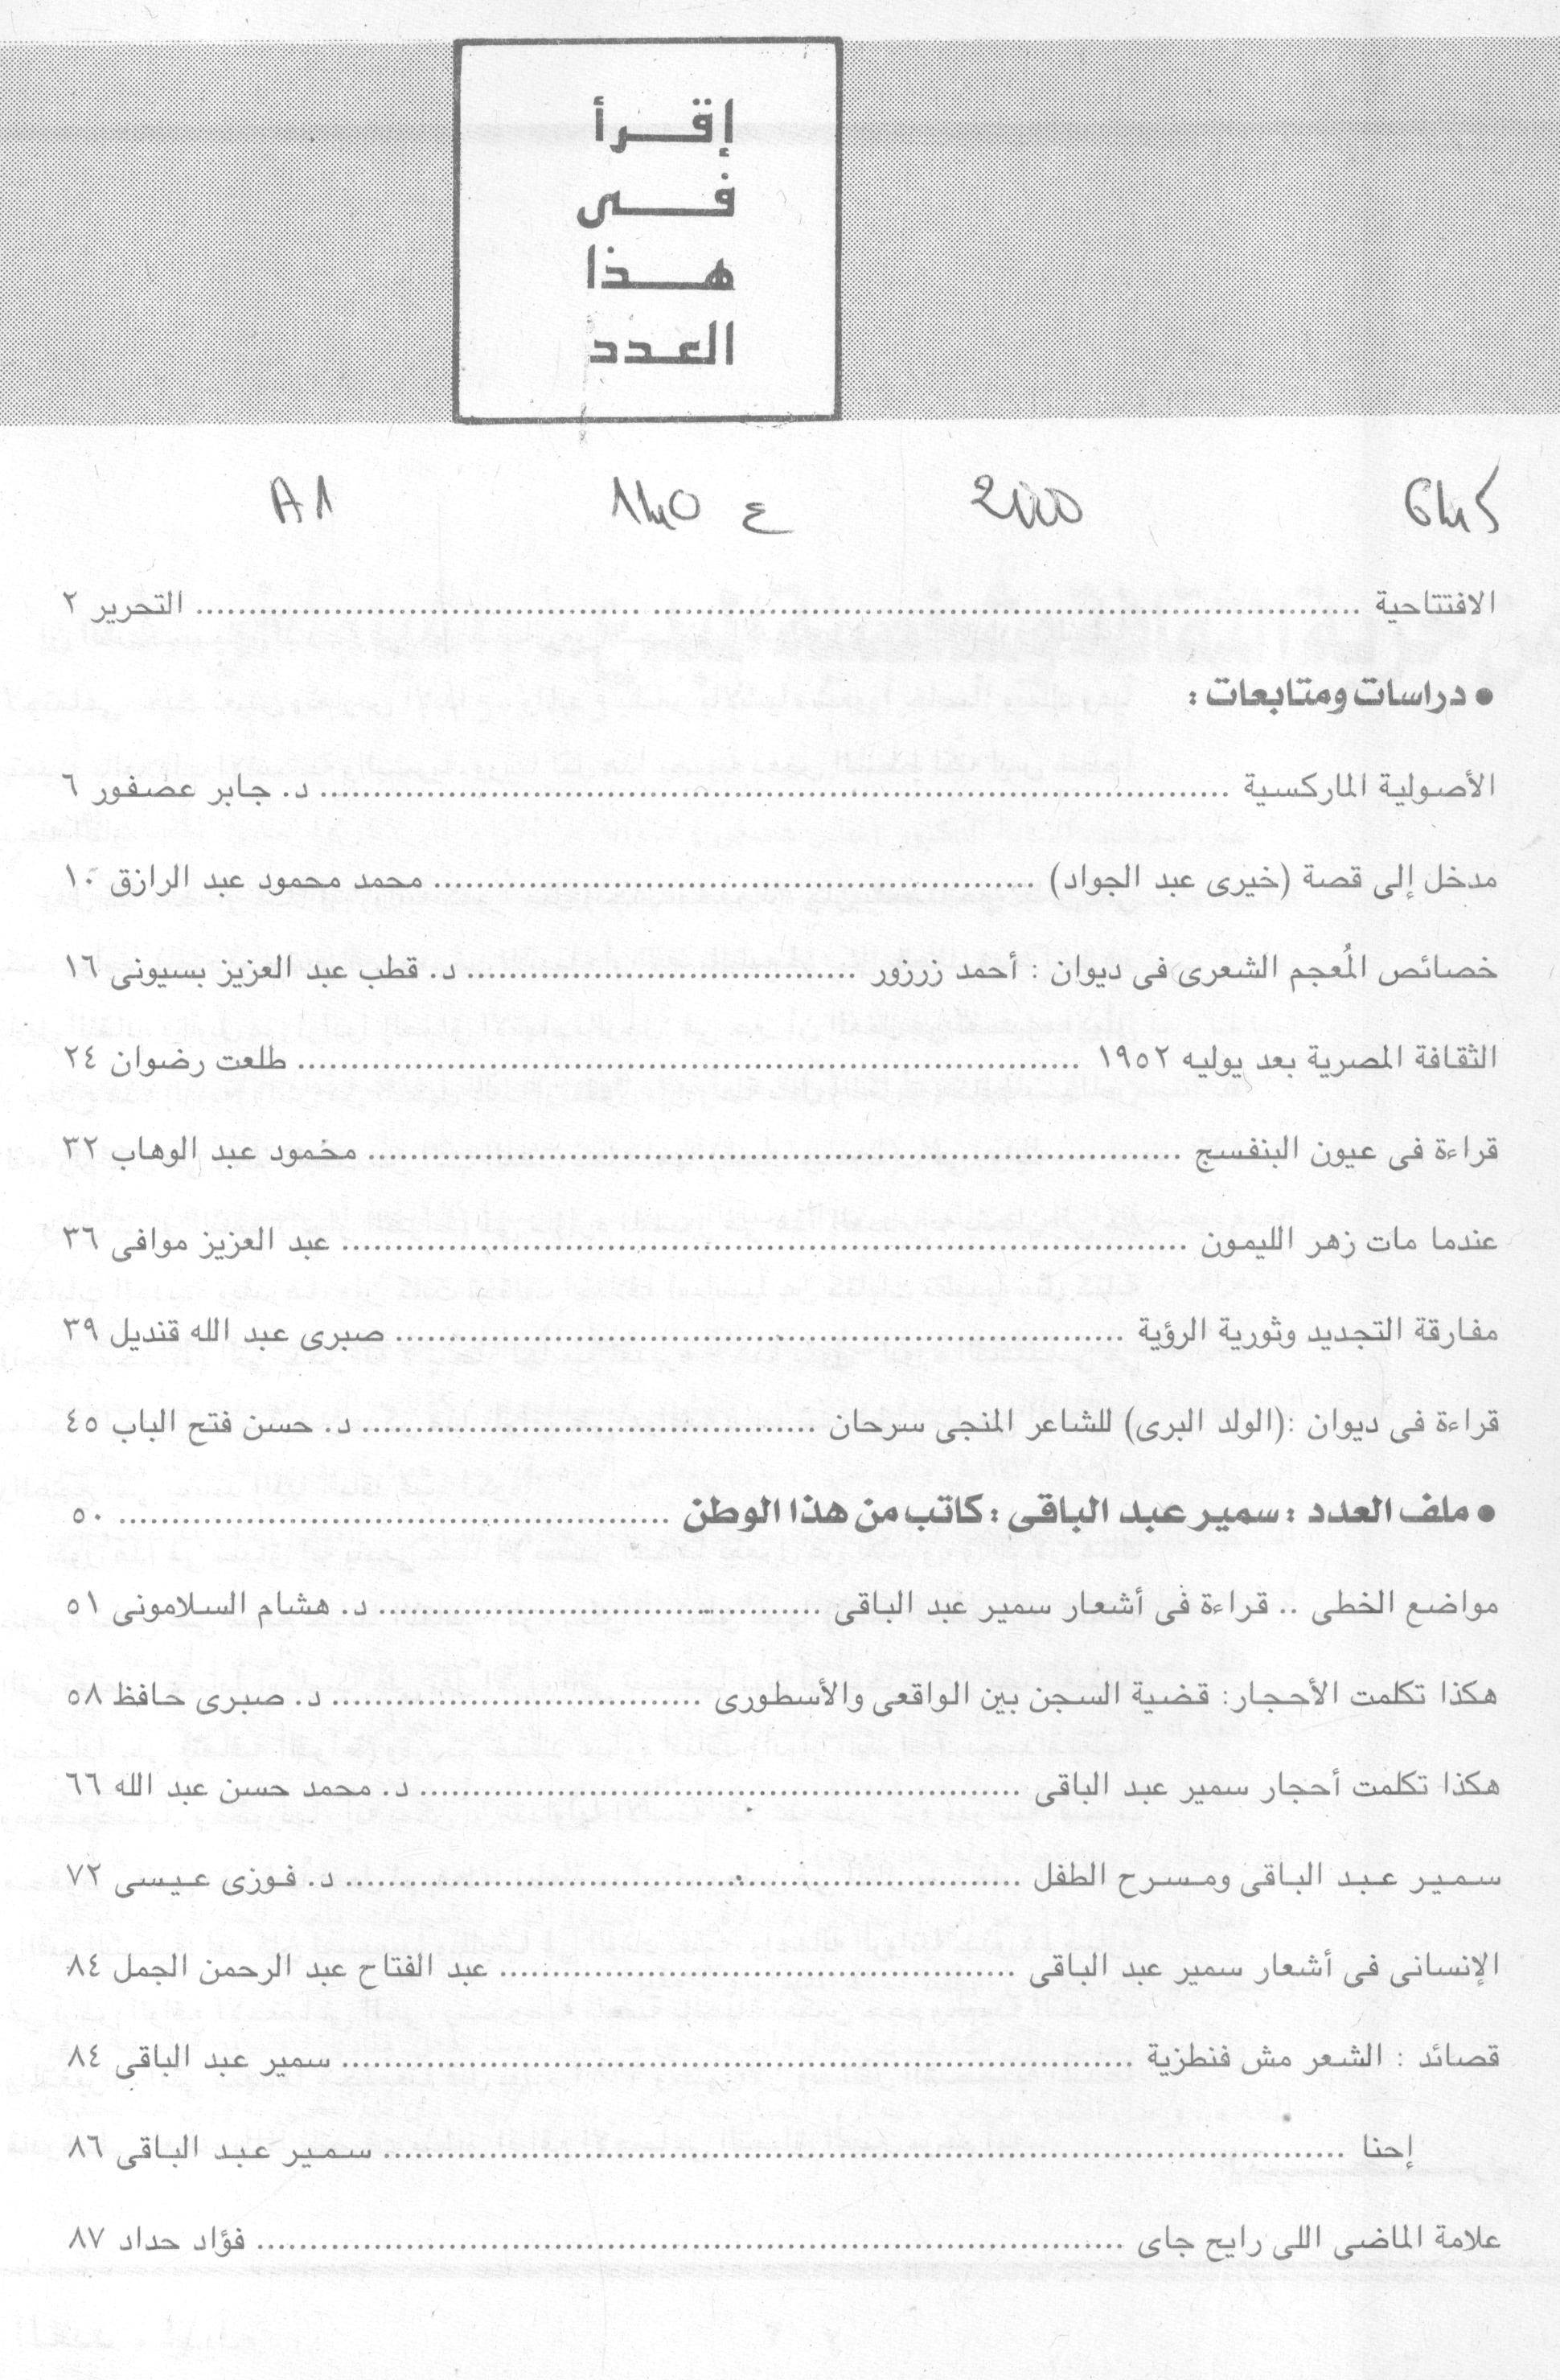 إقرأ
فى
هذا
العدد
A1 140 ع 2000 6145
الافتتاحية ........ التحرير ٢
● دراسات ومتابعات :
الأصولية الماركسية ........ د. جابر عصفور ٦
مدخل إلى قصة (خيرى عبد الجواد) ........ محمد محمود عبد الرازق ١٠
خصائص المُعجم الشعرى فى ديوان : أحمد زرزور ........ د. قطب عبد العزيز بسيونى ١٦
الثقافة المصرية بعد يوليه ١٩٥٢ ........ طلعت رضوان ٢٤
قراءة فى عيون البنفسج ........ محمود عبد الوهاب ٣٢
عندما مات زهر الليمون ........ عبد العزيز موافى ٣٦
مفارقة التجديد وثورية الرؤية ........ صبرى عبد الله قنديل ٣٩
قراءة فى ديوان :(الولد البرى) للشاعر المنجى سرحان ........ د. حسن فتح الباب ٤٥
● ملف العدد : سمير عبد الباقى : كاتب من هذا الوطن ........ ٥٠
مواضع الخطى .. قراءة فى أشعار سمير عبد الباقى ........ د. هشام السلامونى ٥١
هكذا تكلمت الأحجار: قضية السجن بين الواقعى والأسطورى ........ د. صبرى حافظ ٥٨
هكذا تكلمت أحجار سمير عبد الباقى ........ د. محمد حسن عبد الله ٦٦
سمير عبد الباقى ومسرح الطفل ........ د. فوزى عيسى ٧٢
الإنسانى فى أشعار سمير عبد الباقى ........ عبد الفتاح عبد الرحمن الجمل ٨٤
قصائد : الشعر مش فنطزية ........ سمير عبد الباقى ٨٤
إحنا ........ سمير عبد الباقى ٨٦
علامة الماضى اللى رايح جاى ........ فؤاد حداد ٨٧